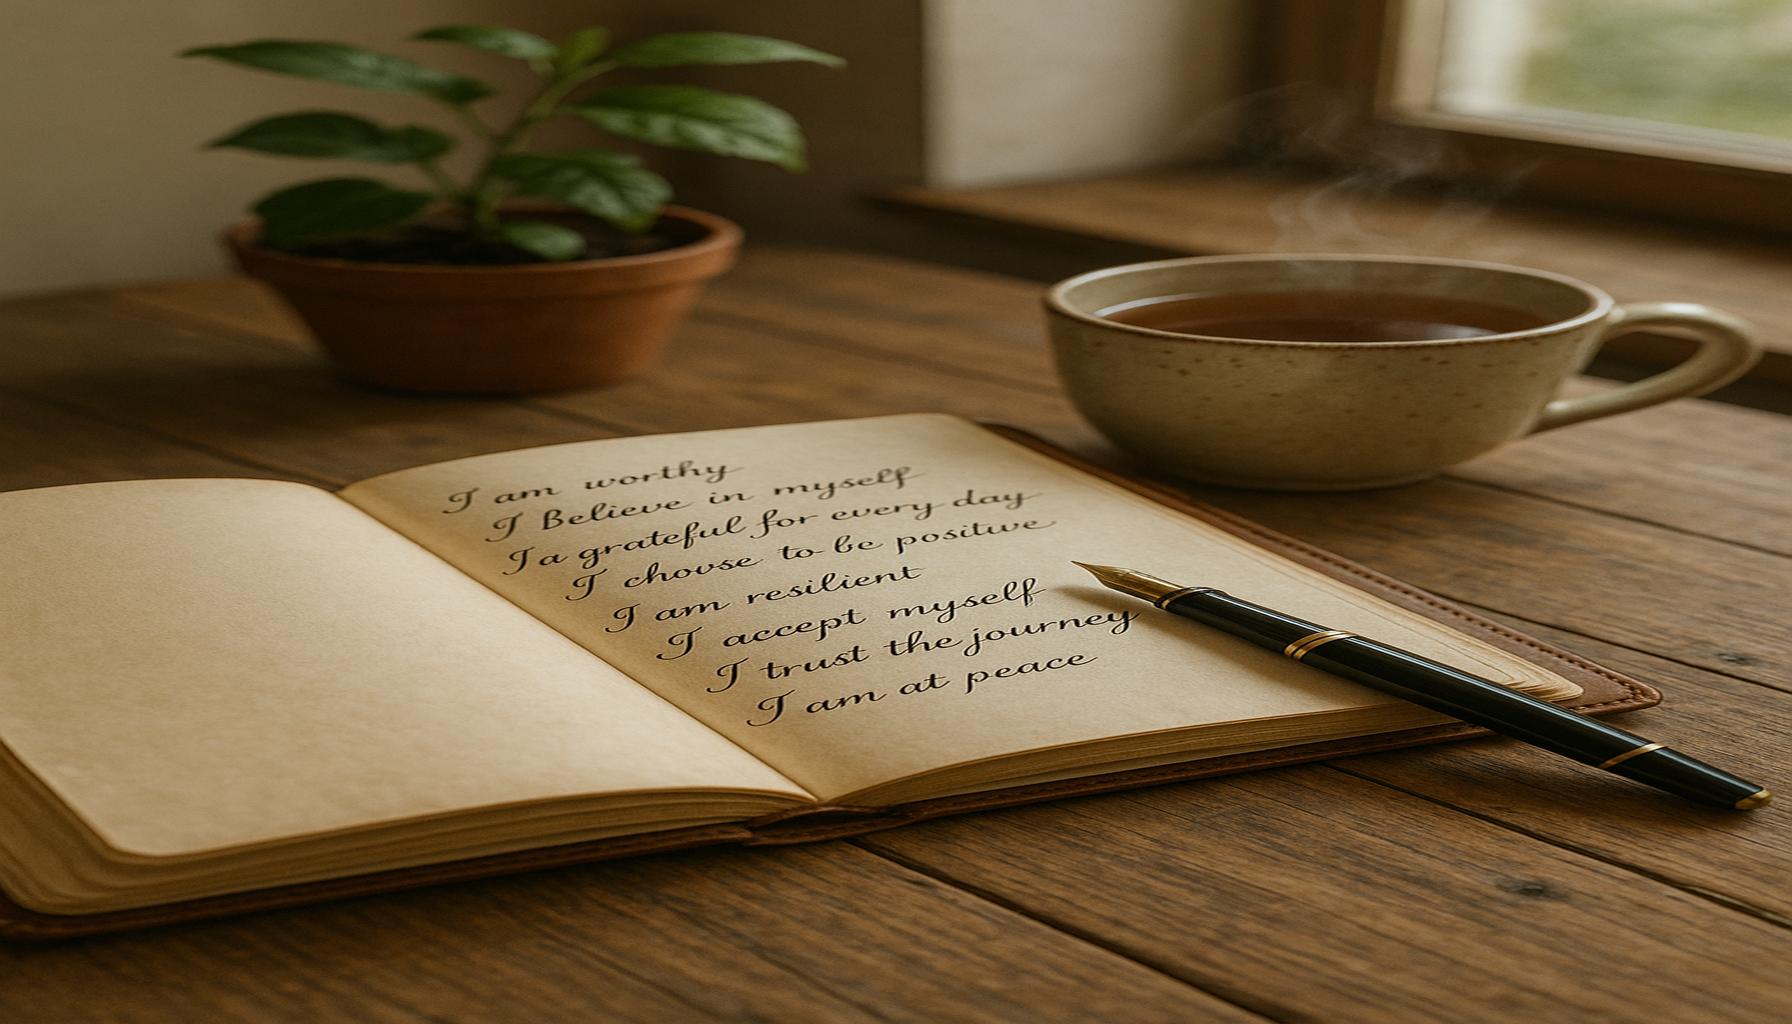 I am worthy
I Believe in myself
I a grateful for every day
I chouse to be positive
I am resilient
I accept myself
I trust the journey
I am at peace